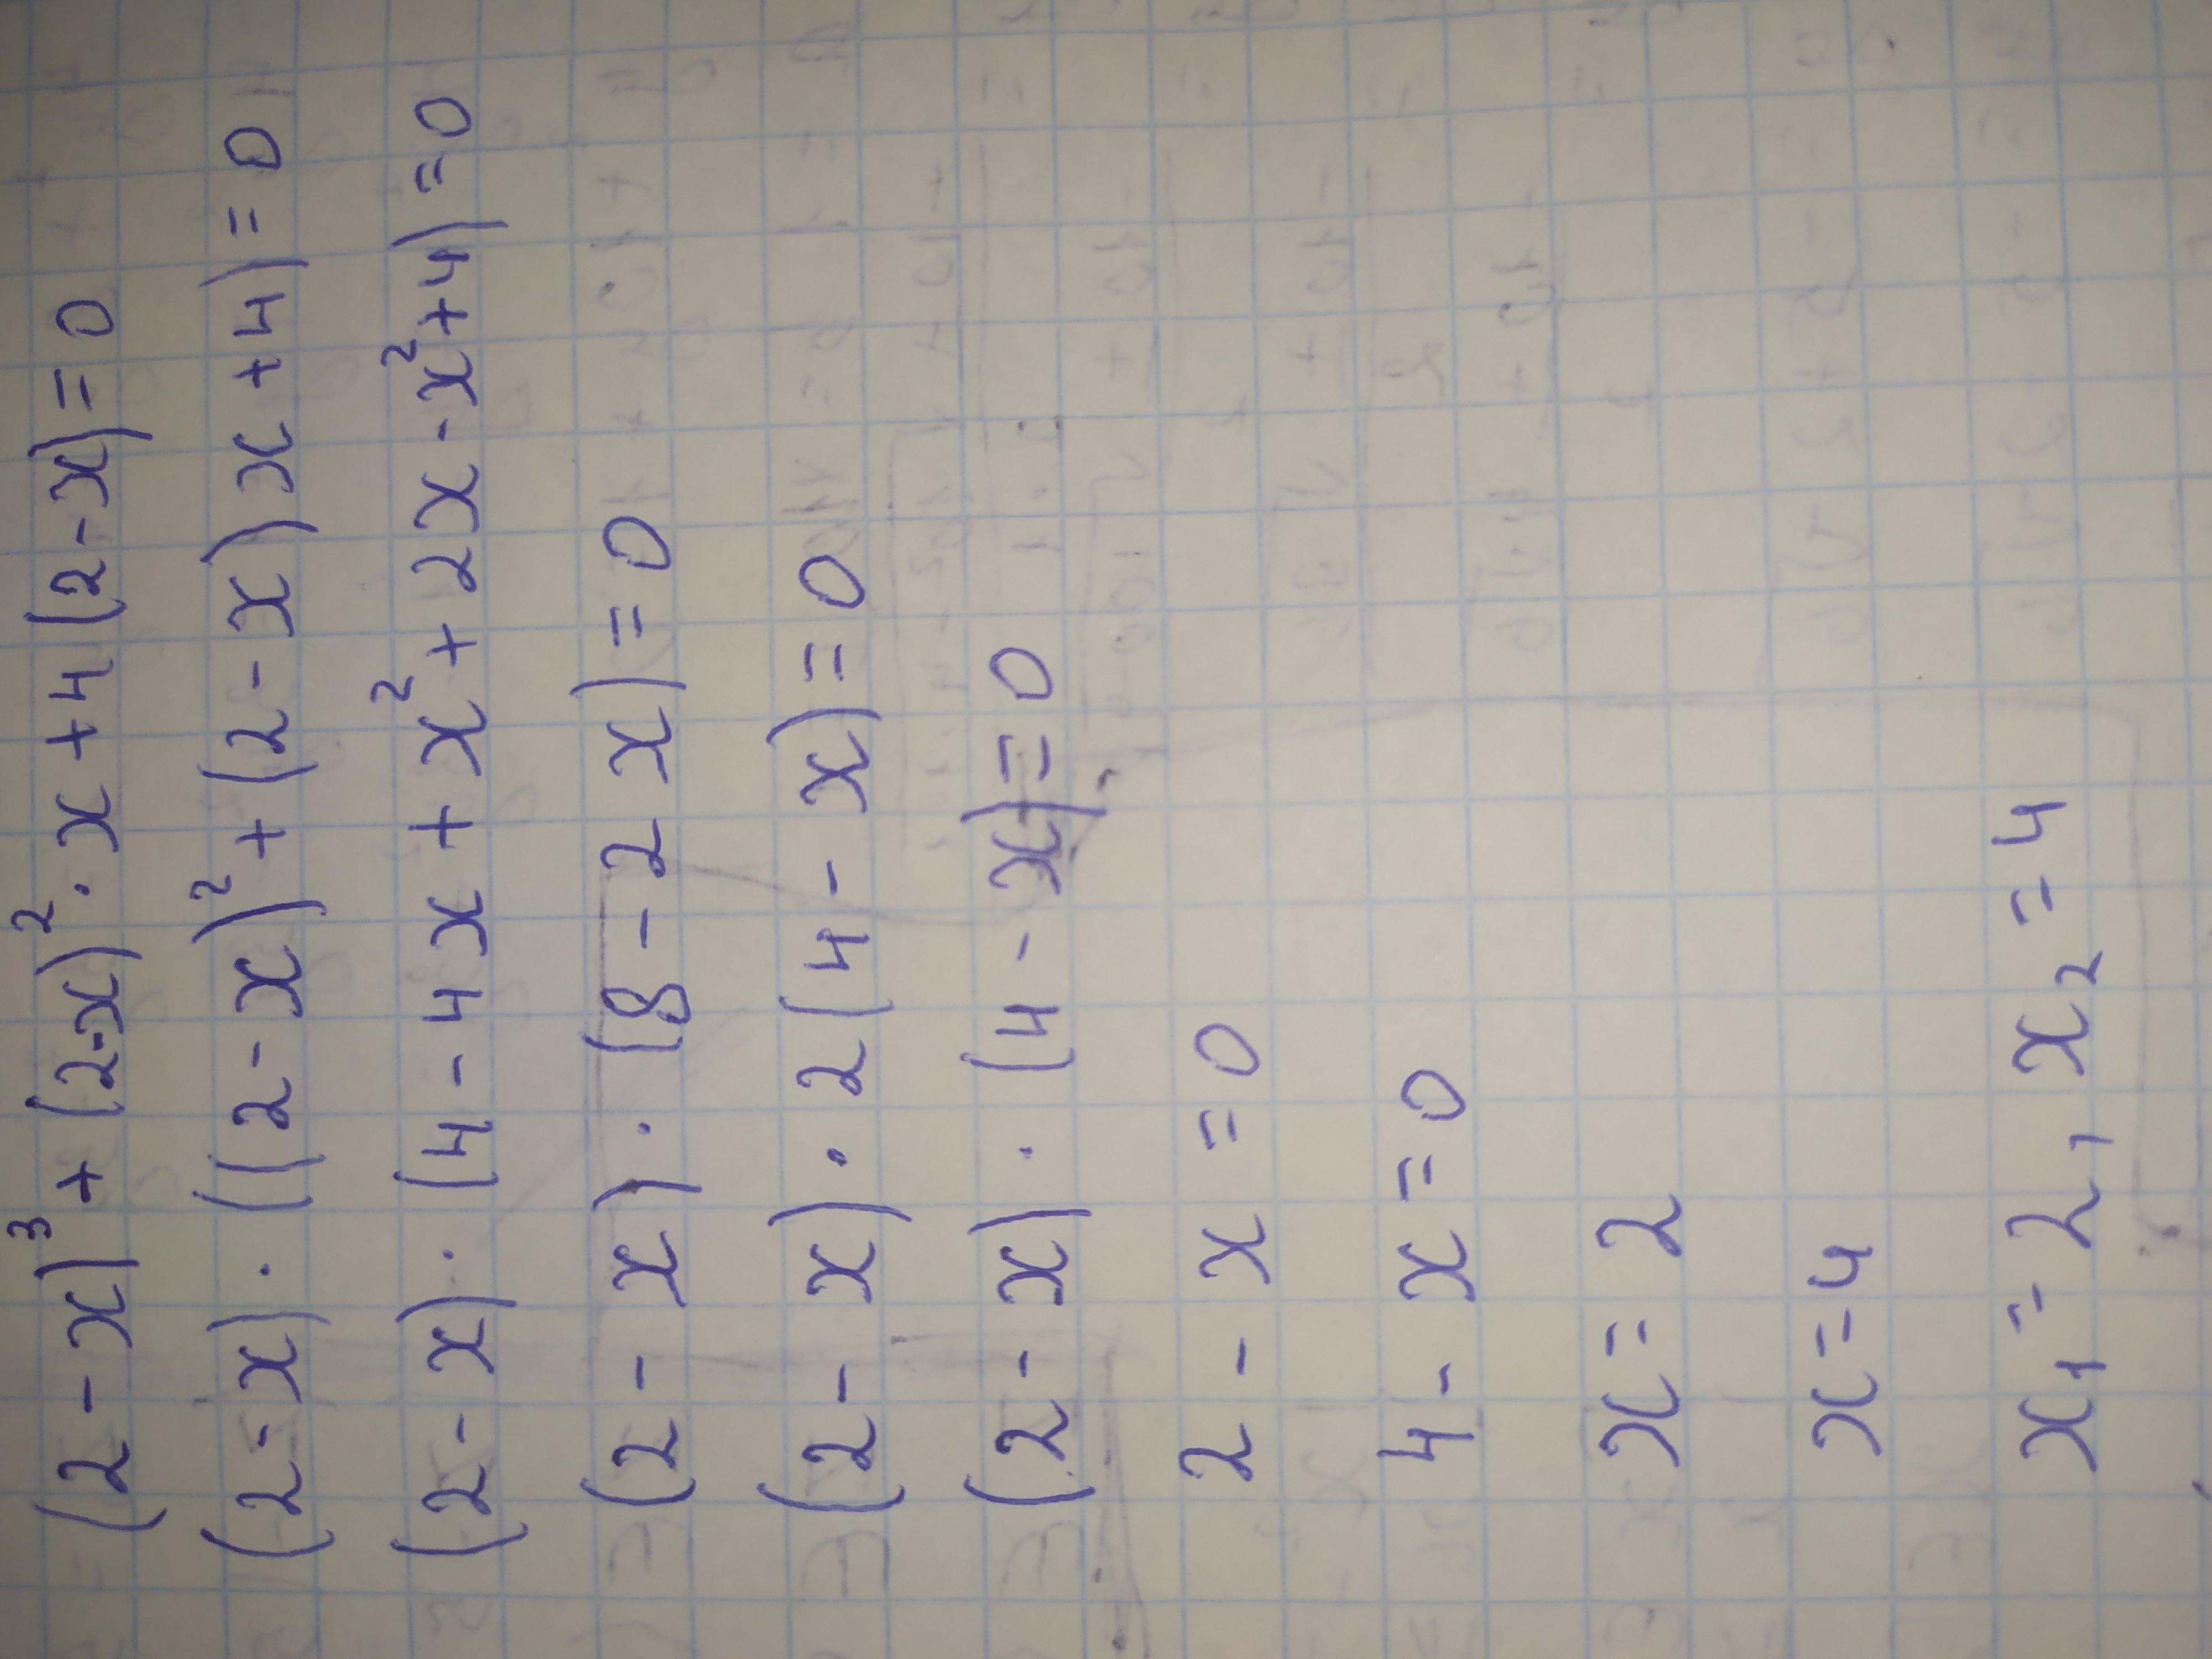 (2-x)³+(2-x)²·x+4(2-x)=0
(2-x)·((2-x)²+(2-x)x+4)=0
(2-x)·(4-4x+x²+2x-x²+4)=0
(2-x)·(8-2x)=0
(2-x)·2(4-x)=0
(2-x)·(4-x)=0
2-x=0
4-x=0
x=2
x=4
x₁=2, x₂=4